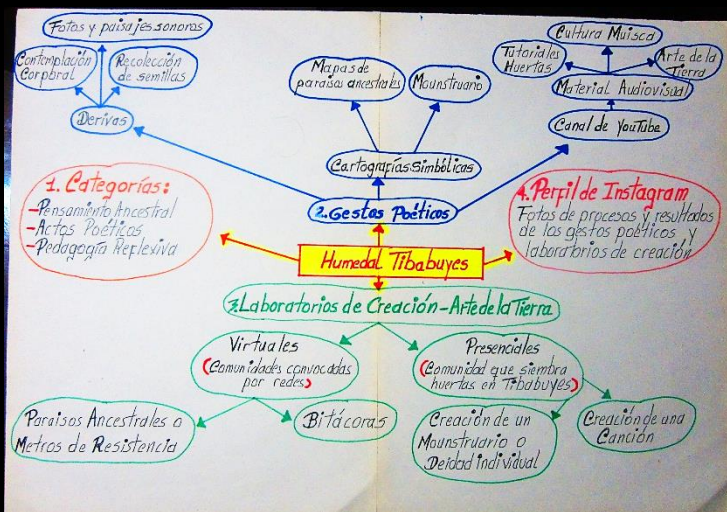 Fotos y paisajes sonoros
Contemplación
Corporal
Recolección
de semillas
Derivas
Mapas de
paraisos ancestrales
Mounstruario
Cartografías Simbólicas
Cultura Muisca
Tutoriales
Huertas
Arte de la
Tierra
Material Audiovisual
Canal de YouTube
1. Categorías:
- Pensamiento Ancestral
- Actos Poéticos
- Pedagogía Reflexiva
2. Gestos Poéticos
4. Perfil de Instagram
Fotos de procesos y resultados
de los gestos poéticos y
laboratorios de creación
Humedal Tibabuyes
3. Laboratorios de Creación - Arte de la Tierra
Virtuales
(Comunidades convocadas
por redes)
Presenciales
(Comunidad que siembra
huertas en Tibabuyes)
Paraisos Ancestrales o
Metros de Resistencia
Bitácoras
Creación de un
Mounstruario o
Deidad individual
Creación de una
Canción